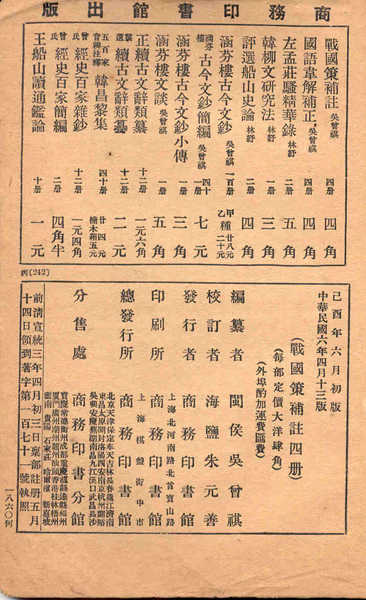 商務印書館出版
戰國策補註 吳曾祺 四冊 四角
國語韋解補正 吳曾祺 四冊 四角
左孟莊騷精華錄 林紓 二冊 五角
韓柳文研究法 林紓 一冊 三角
評選船山史論 林紓 二冊 四角
涵芬樓古今文鈔 吳曾祺 一百冊 甲種 廿八元 乙種 二十元
涵芬樓古今文鈔簡編 吳曾祺 四十冊 七元
涵芬樓古今文鈔小傳 二冊 三角
涵芬樓文談 吳曾祺 一冊 五角
正續古文辭類纂 十二冊 一元六角
續古文辭類纂 十二冊 二元
五百家音辯註釋 韓昌黎集 四十冊 廿四元 楠木箱五元
曾氏 經史百家雜鈔 十二冊 一元四角
曾氏 經史百家簡編 二冊 四角半
王船山讀通鑑論 十冊 一元
丙(242)
己酉年六月初版
中華民國六年四月十三版
(戰國策補註四冊)
(每部定價大洋肆角)
(外埠酌加運費匯費)
編纂者 閩侯吳曾祺
校訂者 海鹽朱元善
發行者 商務印書館
上海北河南路北首寶山路
印刷所 商務印書館
上海棋盤街中市
總發行所 商務印書館
分售處 商務印書分館
前清宣統三年四月初三日稟部註册五月
十四日領到著字第一百七十一號執照
一八六〇何